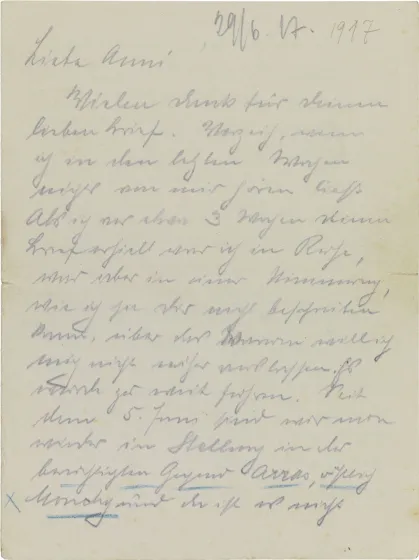 29/6. 17. 1917
Liebe Anni
Vielen Dank für deinen
lieben Brief. Verzeih, wenn
ich in den letzten Wochen
nichts von mir hören ließ.
Als ich vor etwa 3 Wochen deinen
Brief erhielt war ich in Ruhe,
war aber in einer Stimmung,
wie ich sie dir nicht beschreiben
kann, über das Warum will ich
mich nicht näher auslassen. Es
würde zu weit führen. Seit
dem 5. Juni sind wir nun
wieder in Stellung in der
berüchtigten Gegend Arras, östlich
x Monchy und da ist es nicht